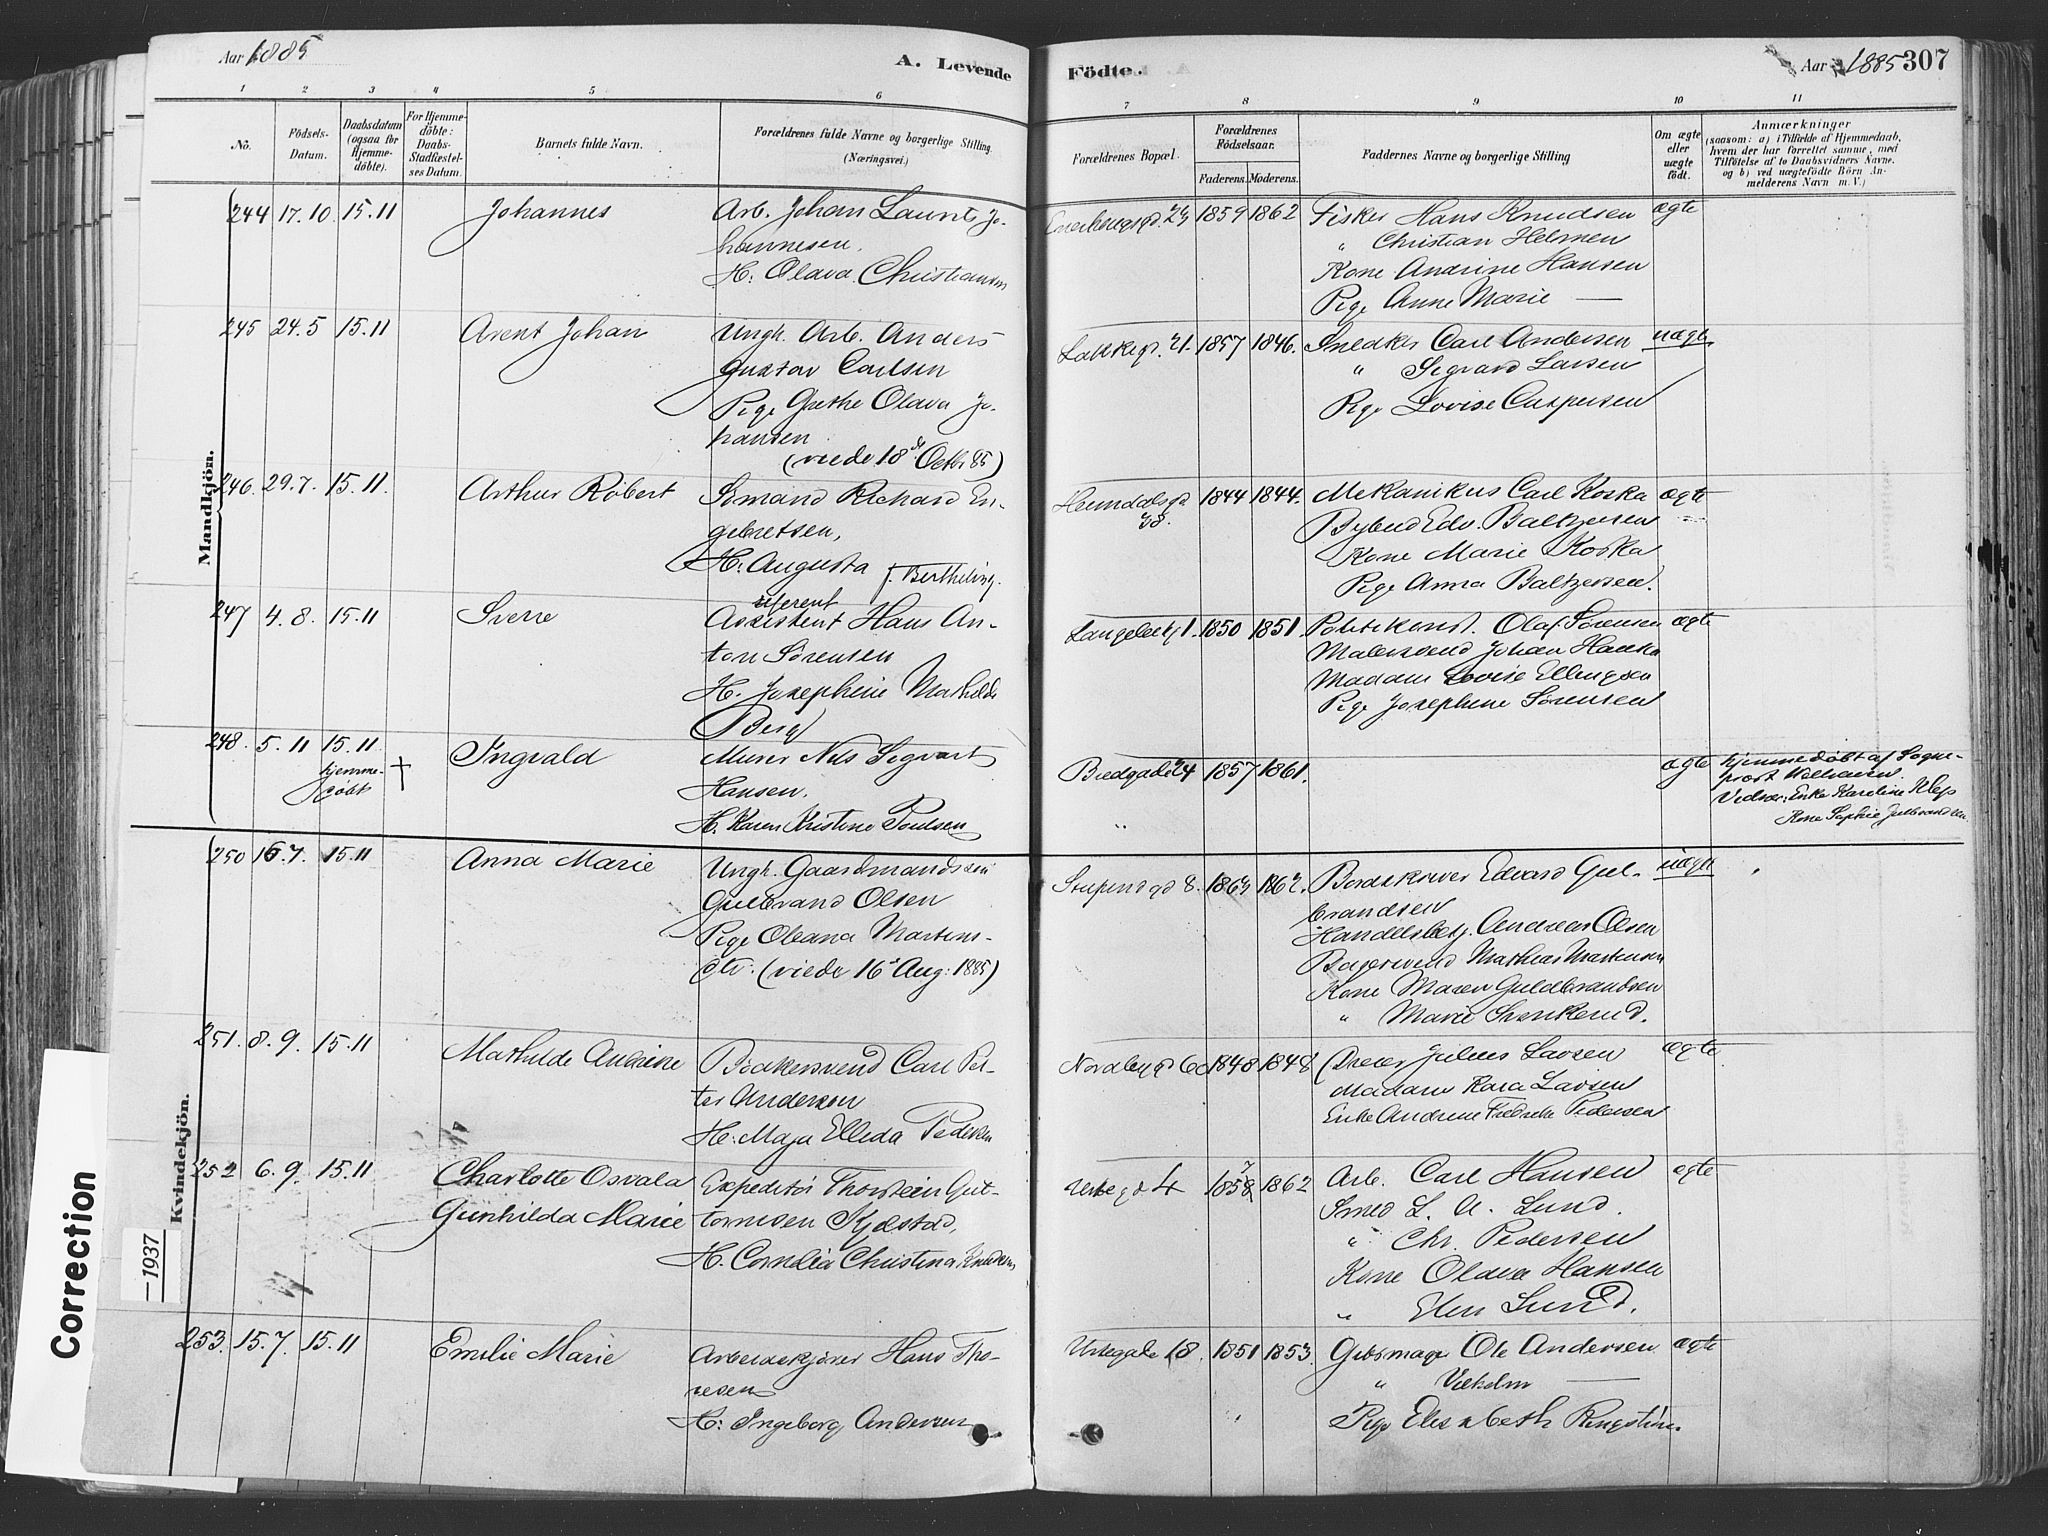 Aar 1885
A. Levende
Födte.
Aar 1885 307
1 2 3 4 5 6 7 8 9 10 11
No.
Födsels-
Datum.
Daabsdatum
(ogsaa for
Hjemme-
döbte).
For Hjemme-
döbte:
Daabs-
Stadfæstel-
ses Datum.
Barnets fulde Navn.
Forældrenes fulde Navne og borgerlige Stilling
(Næringsvei.)
Forældrenes Bopæl.
Forældrenes
Födselsaar.
Faderens. Moderens.
Faddernes Navne og borgerlige Stilling
Om ægte
eller
uægte
födt.
Anmærkninger
(saasom: a) i Tilfælde af Hjemmedaab,
hvem der har forrettet samme, med
Tilföielse af to Daabsvidners Navne.
og b) ved uægtefödte Börn An-
melderens Navn m. V.)
Mandkjön.
244 17.10. 15.11 Johannes
Arb. Johan Laurits Jo-
hannesen.
H. Olava Christiansen
1859 1862
Fisker Hans Knudsen
" Christian Helmen
Kone Andrine Hansen
Pige Anne Marie —
ægte
245 24.5 15.11 Arent Johan
Ungk. Arb. Anders
Gustav Carlsen
Pige Grethe Olava Jo-
hansen
(viede 18de Octbr 85)
Lakkegd. 21. 1857 1846.
Snedker Carl Andersen
" Sigvard Larsen
Pige Lovise Caspersen
uægte
246. 29.7. 15.11. Arthur Robert
Sömand Richard En-
gebretsen,
H. Augusta f. Berthling.
Heimdalsgd
38. 1844 1844.
Mekanikus Carl Koska
Bybud Edv. Baltzersen
Kone Marie Koska
Pige Anna Baltzersen.
ægte
247 4.8. 15.11 Sverre
referent
Assistent Hans An-
ton Sörensen
H. Josephine Mathilde
Berg
1. 1850 1851.
Politikonst. Olaf Sörensen
Malersvend Johan
Madam Lovise Ellingsen
Pige Josephine Sörensen
ægte
248. 5.11 15.11
hjemme-
döbt †
Ingvald
Murer Nils Sigvart
Hansen.
H. Karen Kristine Poulsen
Bredgade 24 1857 1861.
"
ægte
Hjemmedöbt af Sogne-
prest Welhaven.
Vidner: Enke Karoline Klep
Kone Sophie
Kvindekjön.
250 16.7. 15.11 Anna Marie
Ungk. Gaardmandssön
Gulbrand Olsen
Pige Oleana Martins-
dtr. (viede 16de Aug: 1885)
8. 1863 1862.
Bordskriver Edvard Gul-
brandsen
Handelsbetj. Andreas Olsen
Bagersvend Mathias Martinsen
Kone Maren Guldbrandsen
" Marie
uægte
251. 8.9. 15.11 Mathilde Andrine
Bödkersvend Carl Pet-
ter Andersen
H: Maja Elleda Pedersen
Nordbygd 60 1848 1848
Dreier Julius Larsen
Madam Kaia Larsen
Enke Andrine Fredrikke Pedersen
ægte
252 6.9. 15.11 Charlotte Osvala
Gunhilda Marie
Expeditör Thorstein Gut-
tormsen Kjöstad,
H. Cornelia Christina Knudsen
Urtegd 4 1858 7 1862
Arb. Carl Hansen
Smed L. A. Lund.
" Chr. Pedersen
Kone Olava Hansen
" Elen Lund.
ægte
253. 15.7. 15.11 Emilie Marie
Arbeidskjörer Hans Tho-
resen
H: Ingeborg Andersen
Urtegade 18. 1851 1853.
Gibsmager Ole Andersen
" Vilhelm —
Pige Elisabeth Ringström.
ægte
Correction
—1937